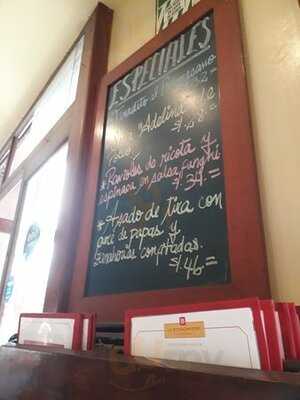 ESPECIALES
"Adelina"
S/.
* Raviolis de ricota y
espinaca en salsa funghi
S/. 37.=
* Asado de tira con
puré de papas y
zanahorias confitadas.
S/. 46=